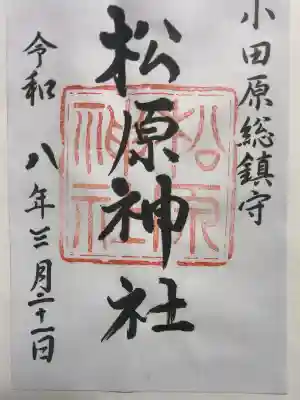 小田原総鎮守
松原神社
松原神社
令和八年三月二十一日